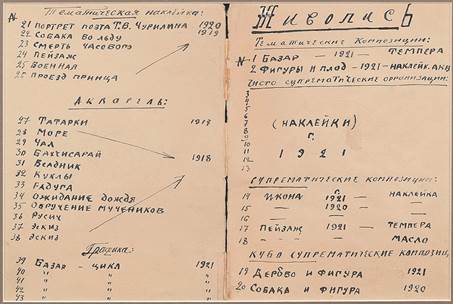 Тематическая наклейка:
21 Портрет поэта Т.В. Чурилина 1920
22 Собака во льду 1919
23 Смерть часового
24 Пейзаж
25 Военная
26 Проезд принца
Акварель:
27 Татарки 1918
28 Море
29 Чал
30 Бахчисарай 1918
31 Всадник
32 Куклы
33 Радуга
34 Ожидание дождя
35 Обручение мучеников
36 Русич
37 Эскиз
38 Эскиз
Графика:
39 Базар - цикл 1921
40 " " "
41 " " "
42 " и "
43 " и "
Живопись
Тематические композиции:
N 1 Базар - 1921 - темпера
2 Фигуры и плод - 1921 - наклейк. акв
Чисто супрематические организации:
3
4
5
6
7 (Наклейки)
8 г.
9
10 1921
11
12
13
Супрематические композиции:
14 Икона г. 1921 - наклейка
15 — 1920 — "
16 — — —
17 Пейзаж 1921 - темпера
18 " — масло
Кубо супрематические композиц.
19 Дерево и фигура 1921
20 Собака и фигура 1920